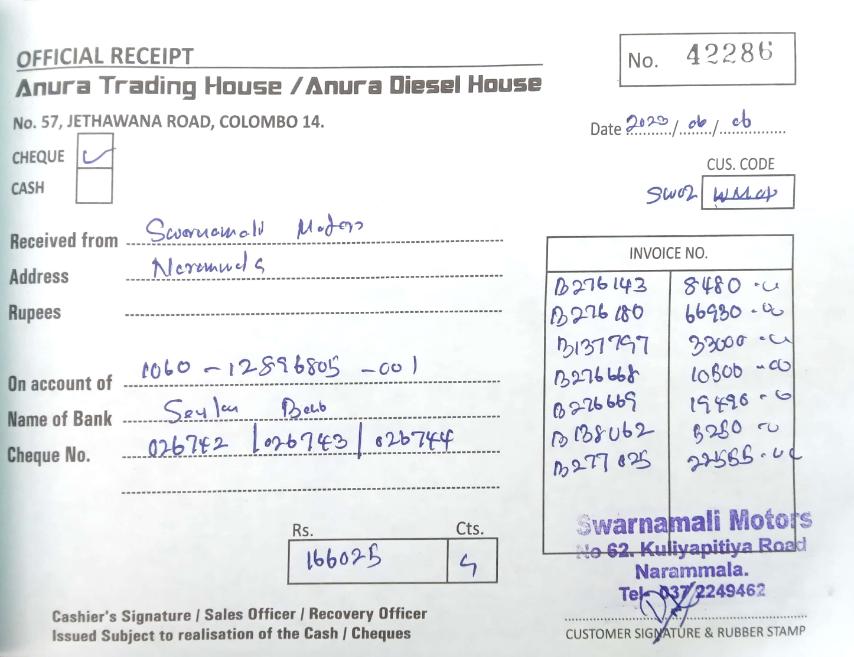 OFFICIAL RECEIPT
No. 42286
Anura Trading House / Anura Diesel House
No. 57, JETHAWANA ROAD, COLOMBO 14.
Date 2023/06/06
CHEQUE ✓
CUS. CODE
CASH
SW02
Received from Swarnamali Motors
INVOICE NO.
Address Narammala
B276143 8480
B276180 66930
Rupees
B137797 33000
On account of 1060-12896805-001
B276668 10300
B276669 19490
Name of Bank Seylan Bank
B138062 5250
Cheque No. 026742 / 026743 / 026744
B277025 22555
Rs. Cts.
166025
Swarnamali Motors
No 62. Kuliyapitiya Road
Narammala.
Tel- 037 2249462
Cashier's Signature / Sales Officer / Recovery Officer
Issued Subject to realisation of the Cash / Cheques
CUSTOMER SIGNATURE & RUBBER STAMP